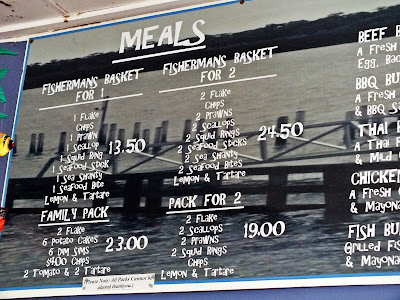 MEALS
FISHERMANS BASKET
FOR 1
1 FLAKE
CHIPS
1 PRAWN
1 SCALLOP
1 SQUID RING
1 SEAFOOD STICK
1 SEA SHANTY
1 SEAFOOD BITE
LEMON & TARTARE
13.50
FAMILY PACK
2 FLAKE
6 POTATO CAKES
6 DIM SIMS
$4.00 CHIPS
2 TOMATO & 2 TARTARE
23.00
FISHERMANS BASKET
FOR 2
2 FLAKE
CHIPS
2 PRAWNS
2 SCALLOPS
2 SQUID RINGS
2 SEAFOOD STICKS
2 SEA SHANTY
2 SEAFOOD BITES
LEMON & TARTARE
24.50
PACK FOR 2
2 FLAKE
2 SCALLOPS
2 PRAWNS
2 SQUID RINGS
CHIPS
LEMON & TARTARE
19.00
(Please Note: All Packs Cannot be
altered thankyou.)
BEEF B
A FRESH
EGG, BAC
BBQ BU
A FRESH
& BBQ SA
THAI B
A THAI F
& MILD C
CHICKEN
A FRESH C
& MAYONA
FISH BU
GRILLED FIS
& MAYONA